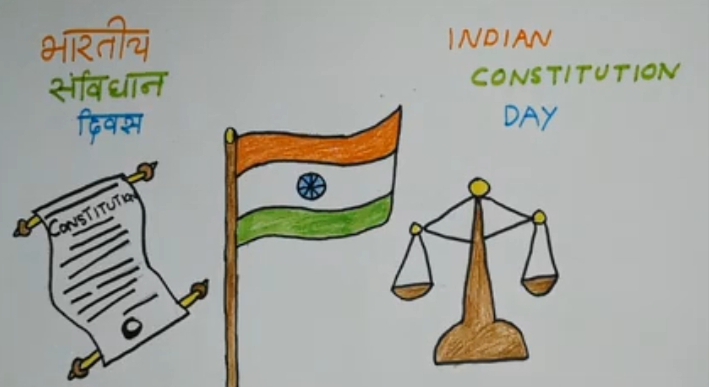 भारतीय
संविधान
दिवस
INDIAN
CONSTITUTION
DAY
CONSTITUTION